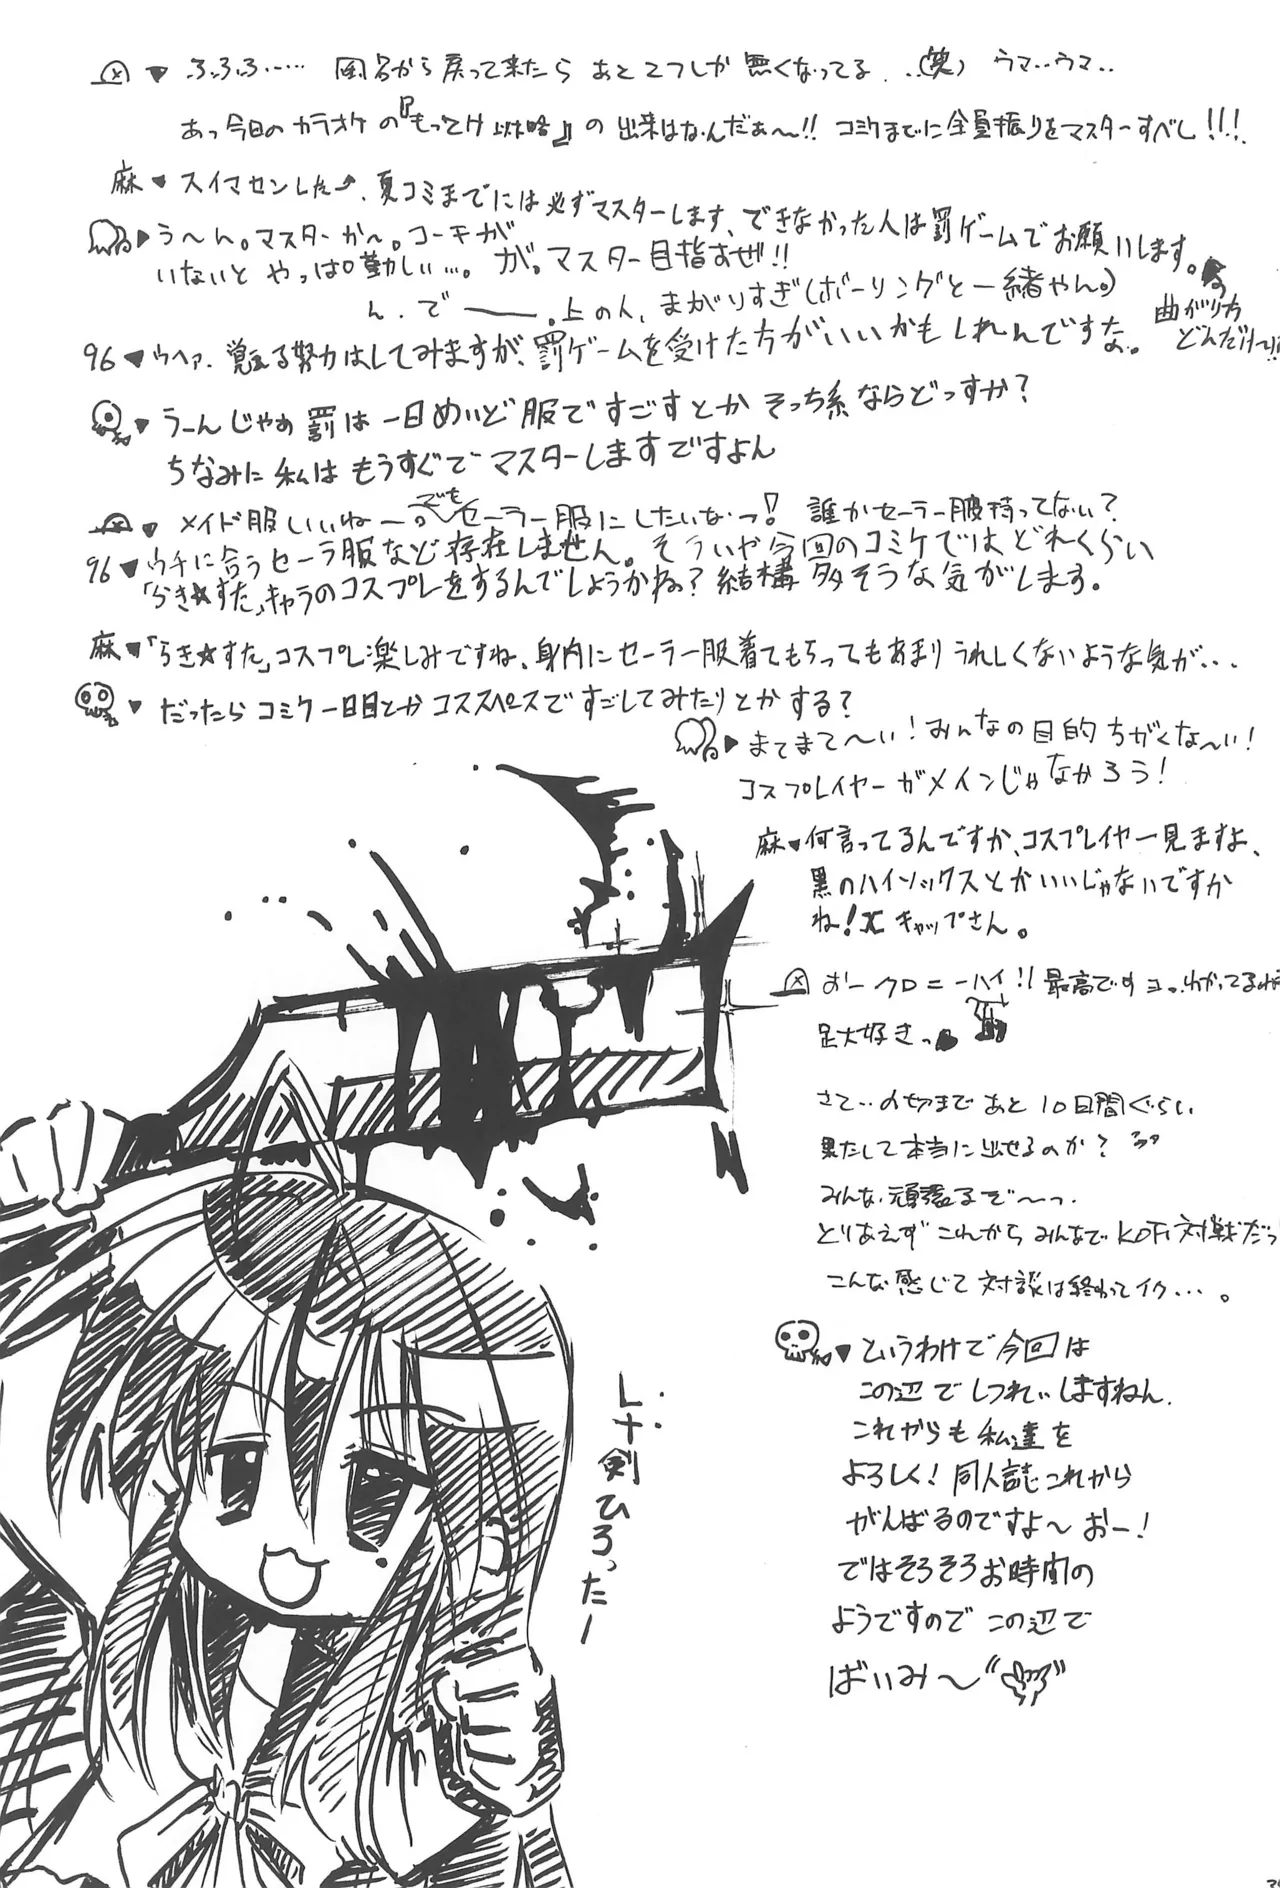 ふふふ…… 固名から戻って来たら あと2つしか 無くなってる…(笑) ウマ‥ウマ‥
あっ今日のカラオケの『もってけ 以下略』の 出来はなんだぁ〜!! コミケまでに全員振りをマスターすべし!!!
麻♥スイマセンした、夏コミまでには必ずマスターします、できなかった人は罰ゲームでお願いします。
う〜ん。マスターか〜。コーキが
いないと やっぱ り勤しい…。が。マスター目指すぜ!!
ん、で ―――。上の人、まがりすぎ(ボーリングと一緒やん。)
曲がり方
どんだけ〜!!
96♥ウヘァ.覚える努力はしてみますが、罰ゲームを受けた方がいいかもしれんですな。
うーんじゃあ罰は一日めいど服ですごすとか そっち系ならどっすか?
ちなみに私はもうすぐでマスターしますですよん
メイド服 いいねー。でもセーラー服にしたいなっ! 誰かセーラー服持ってない?
96♥ウチに合うセーラ服など存在しません。そういや今回のコミケではどれくらい
「らき☆すた」キャラのコスプレをするんでしょうかね?結構多そうな気がします。
麻♥「らき☆すた」コスプレ楽しみですね、身内にセーラー服着てもらってもあまりうれしくないような気が・・・
だったらコミケ一日目とかコススペースですごしてみたりとかする?
まてまて〜い!みんなの目的ちがくな〜い!
コスプレイヤーがメインじゃなかろう!
麻♥何言ってるんですか、コスプレイヤー見ますよ、
黒のハイソックスとかいいじゃないですか
ね!Xキャップさん。
おークロニーハイ!!最高ですヨ。わかってるね
足大好きっ
さて‥〆切まで あと10日間ぐらい
果たして本当に出せるのか?
みんな頑張るぞ〜っ
とりあえず これから みんなで KOF対戦だっ
こんな感じで 対談は終わってイク・・・。
というわけで今回は
この辺でしつれいしますねん.
これからも私達を
よろしく!同人誌これから
がんばるのですよ〜 おー!
ではそろそろお時間の
ようですので この辺で
ばいみ〜
レナ剣ひろったー